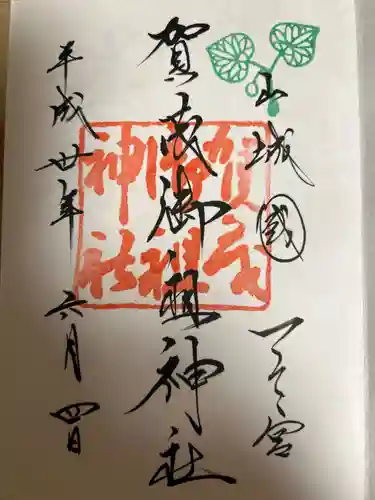 山城國
一之宮
賀茂御祖神社
賀茂
御祖
神社
平成卅年
六月四日